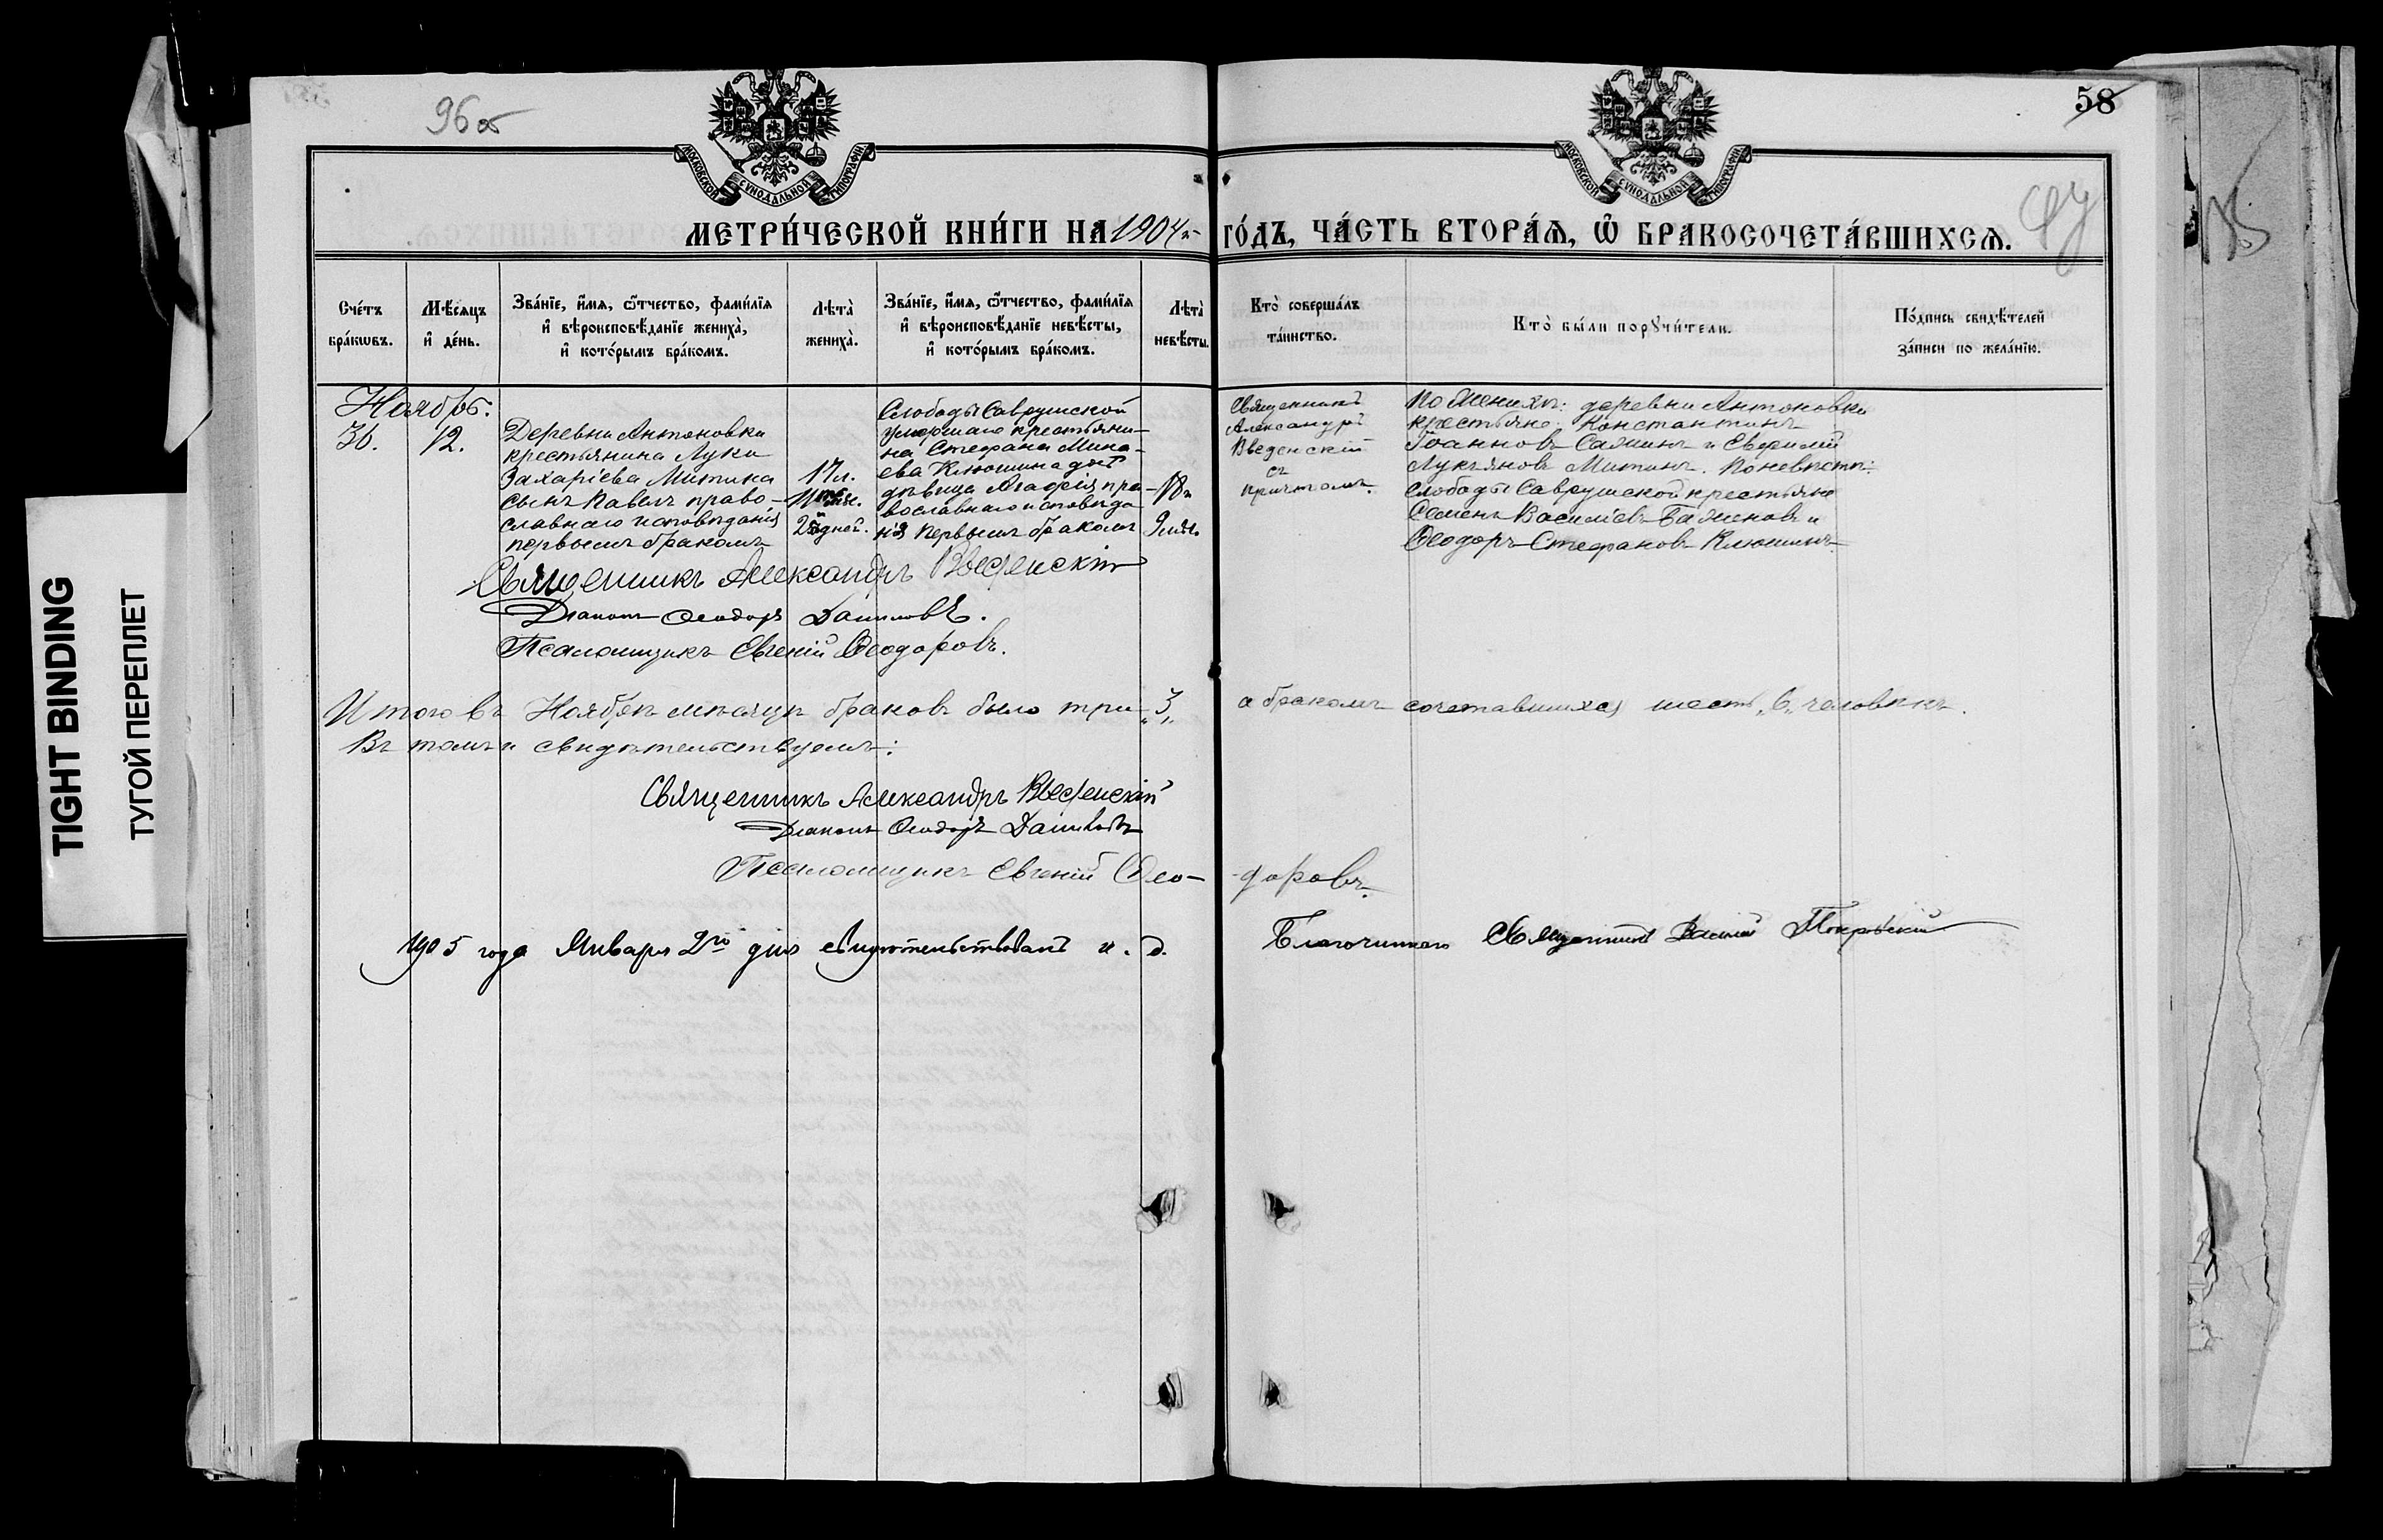 TIGHT BINDING
ТУГОЙ ПЕРЕПЛЕТ
96об
58
МОСКОВСКОЙ СѴНОДАЛЬНОЙ ТИПОГРАФІИ
МОСКОВСКОЙ СѴНОДАЛЬНОЙ ТИПОГРАФІИ
МЕТРИ́ЧЕСКОЙ КНИ́ГИ НА 1904й ГО́ДЪ, ЧА́СТЬ ВТОРА́Ѧ, Ѡ҆ БРАКОСОЧЕТА́ВШИХСѦ.
Сче́тъ
бра́кѡвъ.
Мѣ́сѧцъ
и҆ де́нь.
Зва́нїе, и҆́мѧ, ѻ҆́тчество, фами́лїѧ
и҆ вѣроисповѣ́данїе жениха̀,
и҆ кото́рымъ бра́комъ.
Лѣта̀
жениха̀.
Зва́нїе, и҆́мѧ, ѻ҆́тчество, фами́лїѧ
и҆ вѣроисповѣ́данїе невѣ́сты,
и҆ кото́рымъ бра́комъ.
Лѣта̀
невѣ́сты.
Кто̀ соверша́лъ
та́инство.
Кто̀ бы́ли порꙋчи́тели.
По́дпись свидѣ́телей
за́писи по жела́нїю.
Ноябрь:
36.
12.
Деревни Антоновки
крестьянина Луки
Захаріева Митина
сынъ Павелъ право-
славнаго исповѣданія
первымъ бракомъ
17 л.
11 мѣс.
дней.
Слободы Саврушской
умершаго крестьяни-
на Стефана Мина-
ева Клюшина дочь
дѣвица Агафія пра-
вославнаго исповѣда
нія первымъ бракомъ
18 л
9 мѣс.
Священникъ
Александръ
Введенскій
съ
причтомъ.
По женихѣ: деревни Антоновки
крестьяне: Константинъ
Іоанновъ Сажинъ и Евфимій
Лукьяновъ Митинъ. По невѣстѣ:
слободы Саврушской крестьяне
Семенъ Василіевъ Баженовъ и
Ѳеодоръ Стефановъ Клюшинъ
Священникъ Александръ Введенскій
Діаконъ Ѳеодоръ Даниловъ.
Псаломщикъ Евгеній Ѳеодоровъ.
Итого въ Ноябрѣ мѣсяцѣ браковъ было три „3„ а бракомъ сочетавшихся шесть „6„ человѣкъ.
Въ томъ и свидѣтельствуемъ:
Священникъ Александръ Введенскій
Діаконъ Ѳеодоръ Даниловъ
Псаломщикъ Евгеній Ѳео- -доровъ.
1905 года Января 2го дня свидѣтельствовалъ и. д. Благочиннаго Священникъ Василій Покровскій